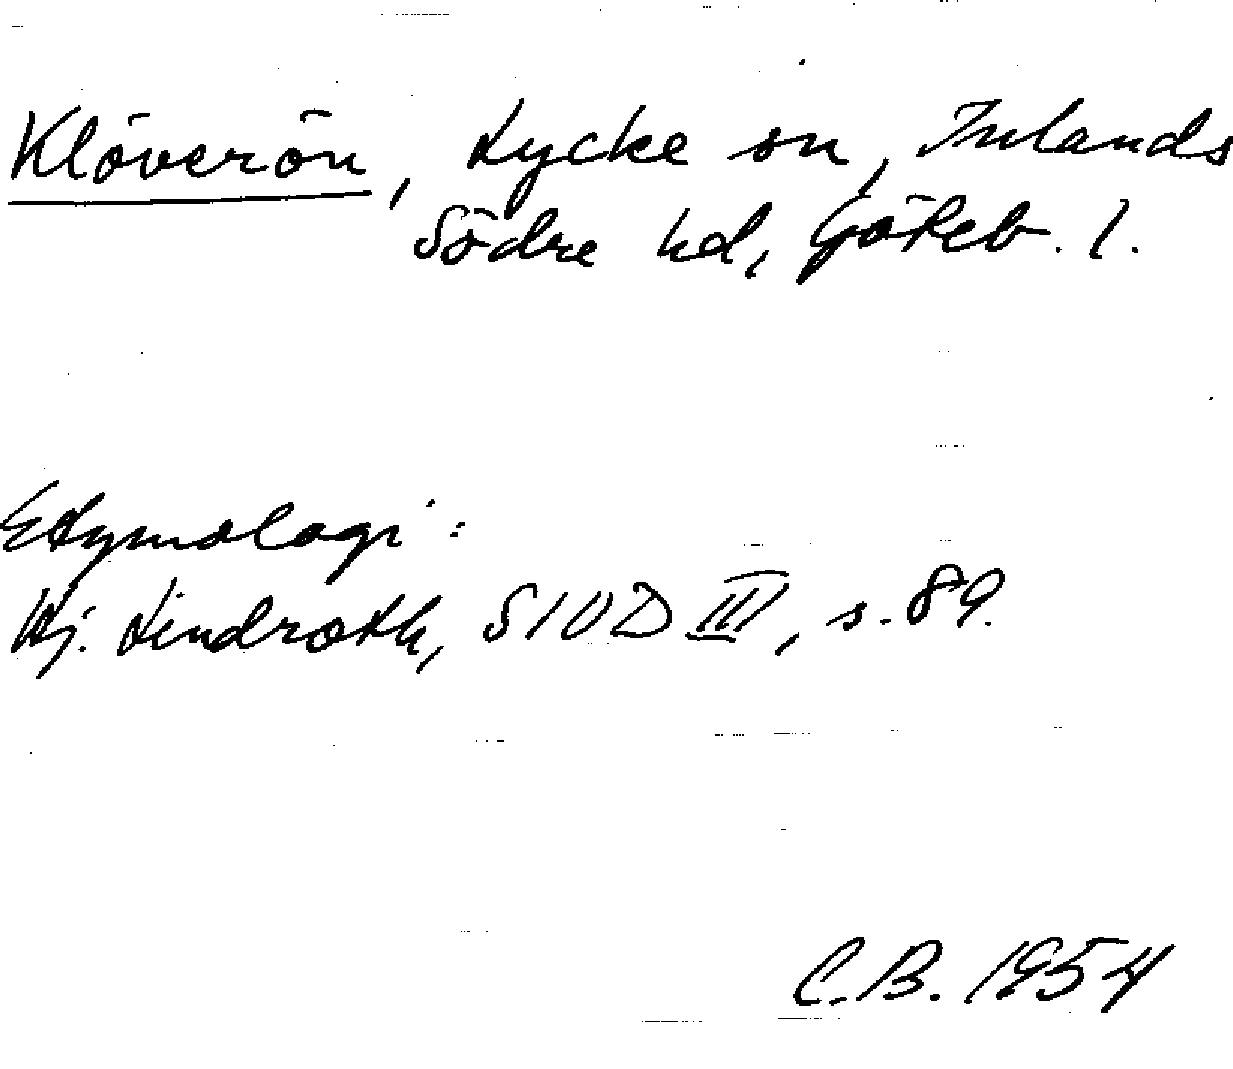 Klöverön, Lycke sn, Inlands
Södre hd, Göteb. l.
Etymologi:
Hj. Lindroth, SIOD III, s. 89.
C.B. 1954